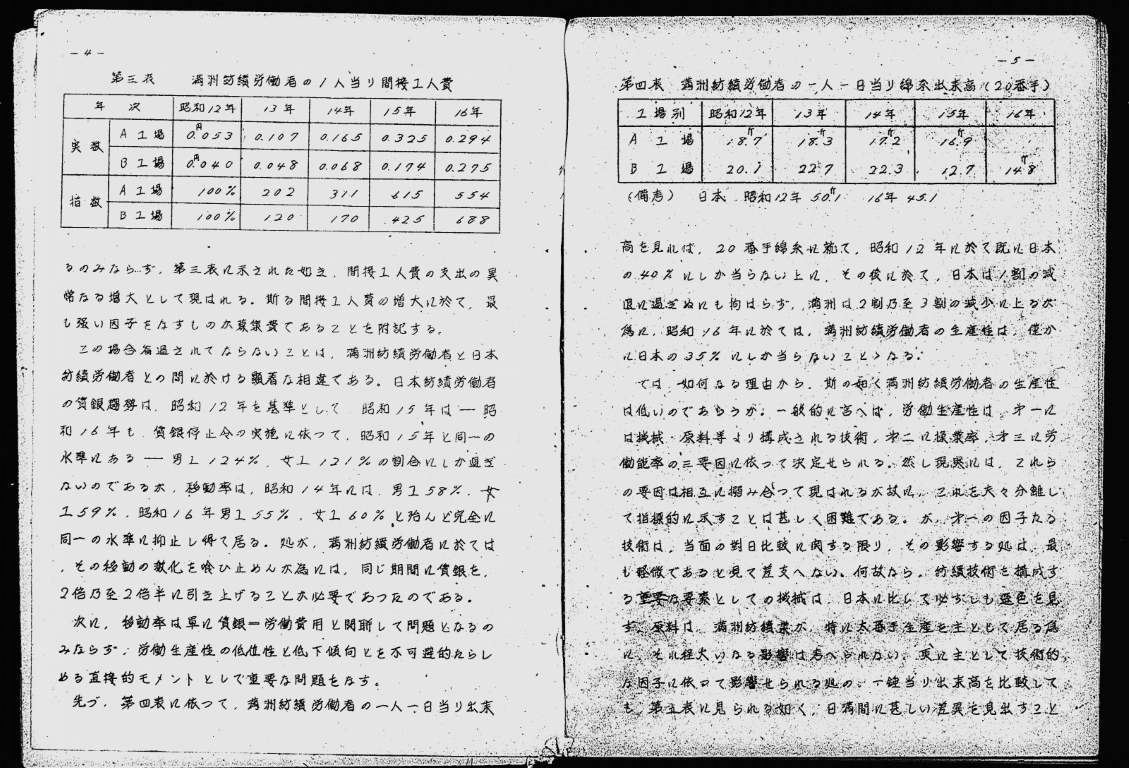 －4－
第三表　満洲紡績労働者の1人当り間接工人費
年次　昭和12年　13年　14年　15年　16年
実数　A工場　円0.053　0.107　0.165　0.325　0.294
B工場　円0.040　0.048　0.068　0.174　0.275
指数　A工場　100%　202　311　615　554
B工場　100%　120　170　425　688
るのみならず、第三表に示された如き、間接工人費の支出の異
常なる増大として現はれる。斯る間接工人費の増大に於て、最
も強い因子をなすものが募集費であることを附記する。
この場合看過されてならないことは、満洲紡績労働者と日本
紡績労働者との間に於ける顕著な相違である。日本紡績労働者
の賃銀趨勢は、昭和12年を基準として、昭和15年は——昭
和16年も、賃銀停止令の実施に依つて、昭和15年と同一の
水準にある——男工124%、女工121%の割合にしか過ぎ
ないのであるが、移動率は、昭和14年には、男工58%、女
工59%、昭和16年男工55%、女工60%と殆んど完全に
同一の水準に抑止し得て居る。処が、満洲紡績労働者に於ては
、その移動の激化を喰ひ止めんが為には、同じ期間に賃銀を、
2倍乃至2倍半に引き上げることが必要であつたのである。
次に、移動率は単に賃銀＝労働費用と関聯して問題となるの
みならず、労働生産性の低位性と低下傾向とを不可避的たらし
める直接的モメントとして重要な問題をなす。
先づ、第四表に依つて、満洲紡績労働者の一人一日当り出来
－5－
第四表　満洲紡績労働者の一人一日当り綿糸出来高（20番手）
工場別　昭和12年　13年　14年　15年　16年
A工場　18.7　18.3　17.2　16.9
B工場　20.1　22.7　22.3　12.7　14.8
（備考）　日本　昭和12年 50.1　16年 45.1
高を見れば、20番手綿糸に就て、昭和12年に於て既に日本
の40%にしか当らない上に、その後に於て、日本は1割の減
退に過ぎぬにも拘はらず、満洲は2割乃至3割の減少に上るが
為に、昭和16年に於ては、満洲紡績労働者の生産性は、僅か
に日本の35%にしか当らないことゝなる。
では、如何なる理由から、斯の如く満洲紡績労働者の生産性
は低いのであらうか。一般的に言へば、労働生産性は、才一に
は機械・原料等より構成される技術、才二に操業率、才三に労
働能率の三要因に依つて決定せられる。然し現実には、これら
の要因は相互に掴み合つて現はれるが故に、これを夫々分離し
て指標的に示すことは甚しく困難である。が、才一の因子たる
技術は、当面の対日比較に関する限り、その影響する処は、最
も軽微であると見て差支へない。何故なら、紡績技術を構成す
る重要な要素としての機械は、日本に比して必ずしも遜色を見
ず、原料は、満洲紡績業が、特に太番手生産を主として居る為
に、それ程大いなる影響は考へられない。更に主として技術的
な因子に依つて影響せられる処の、一錘当り出来高を比較して
も、第五表に見られる如く、日満間に甚しい差異を見出すこと